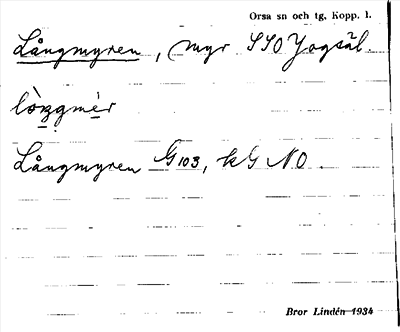 Orsa sn och tg, Kopp. l.
Långmyren, myr SSO Yogsäl.
lòŋgmèr
Långmyren G103, kG NO.
Bror Lindén 1934